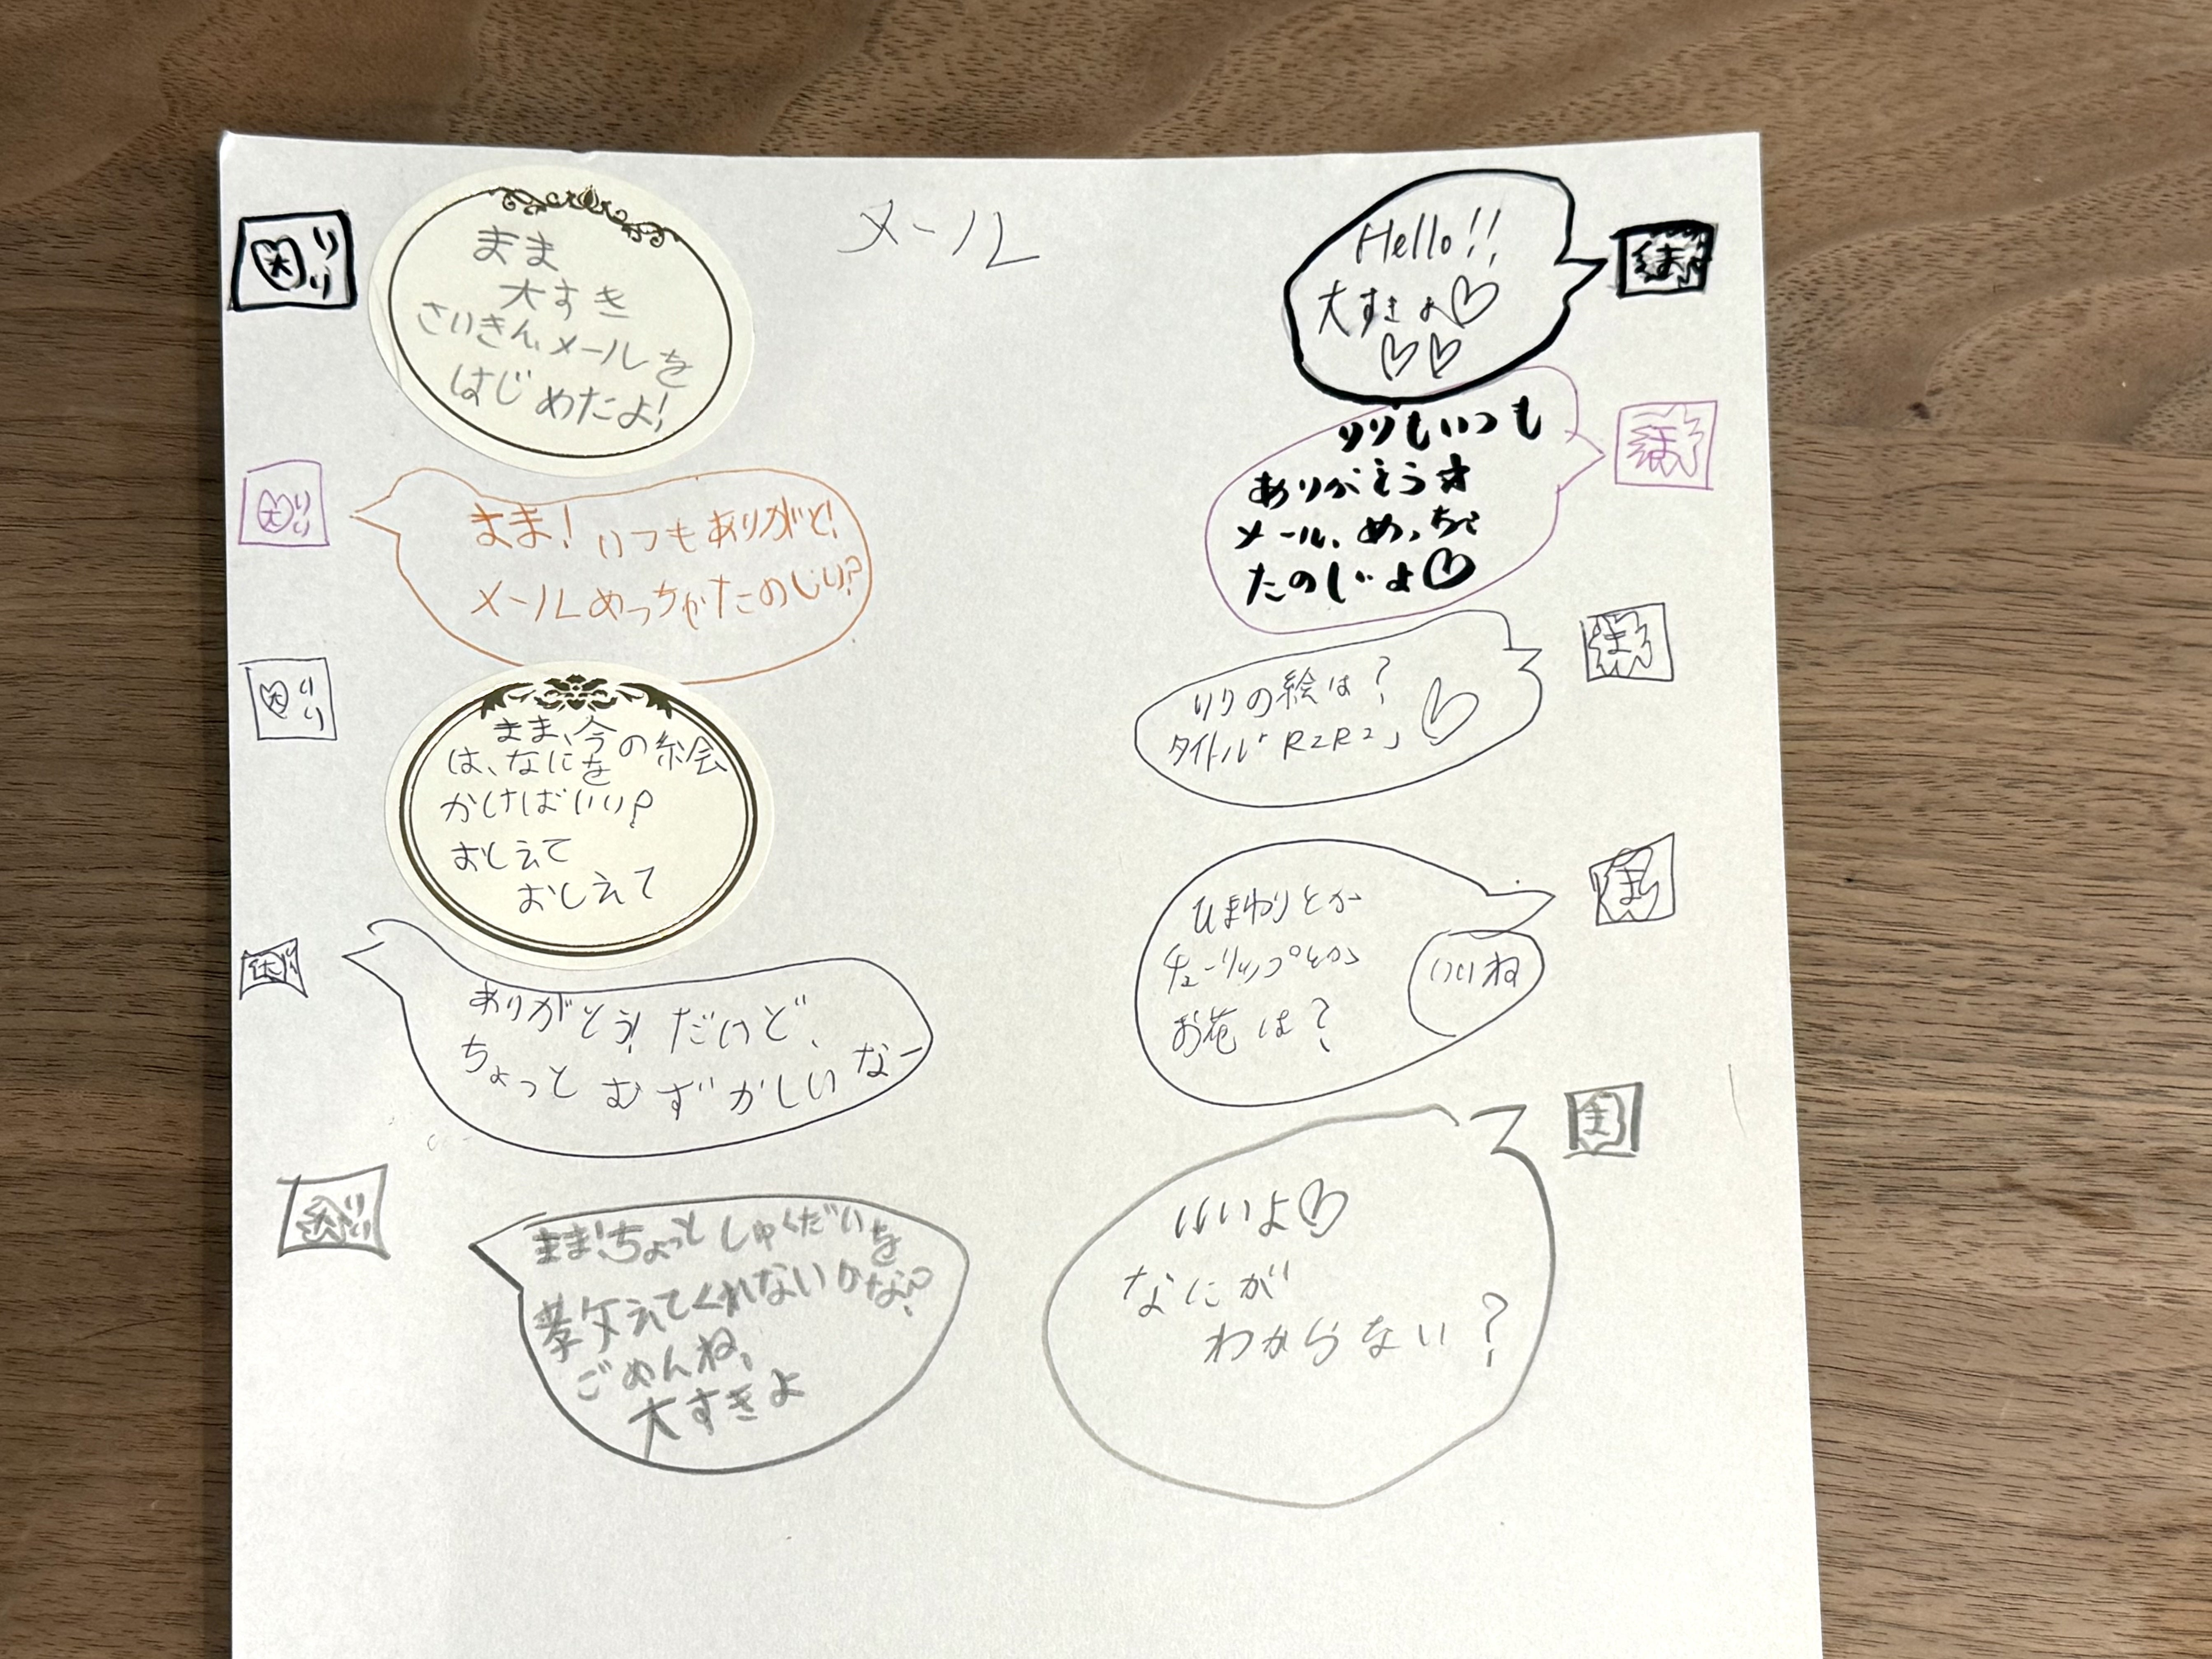 メール
大 りり
まま
大すき
さいきん、メールを
はじめたよ!
Hello!!
大すきよ♡
♡♡
まま
大 りり
まま! いつもありがと!
メールめっちゃたのしい?
りりもいつも
ありがとう☆
メール、めっちゃ
たのしいよ♡
まま
大 りり
まま、今の絵
は、なにを
かけばいい?
おしえて
おしえて
りりの絵は?
タイトル「R2R2」♡
まま
ありがとう! だけど、
ちょっとむずかしいなー
ひまわりとか
チューリップとか
お花は?
いいね
まま! ちょっとしゅくだいを
教えてくれないかな?
ごめんね、
大すきよ
いいよ♡
なにが
わからない?